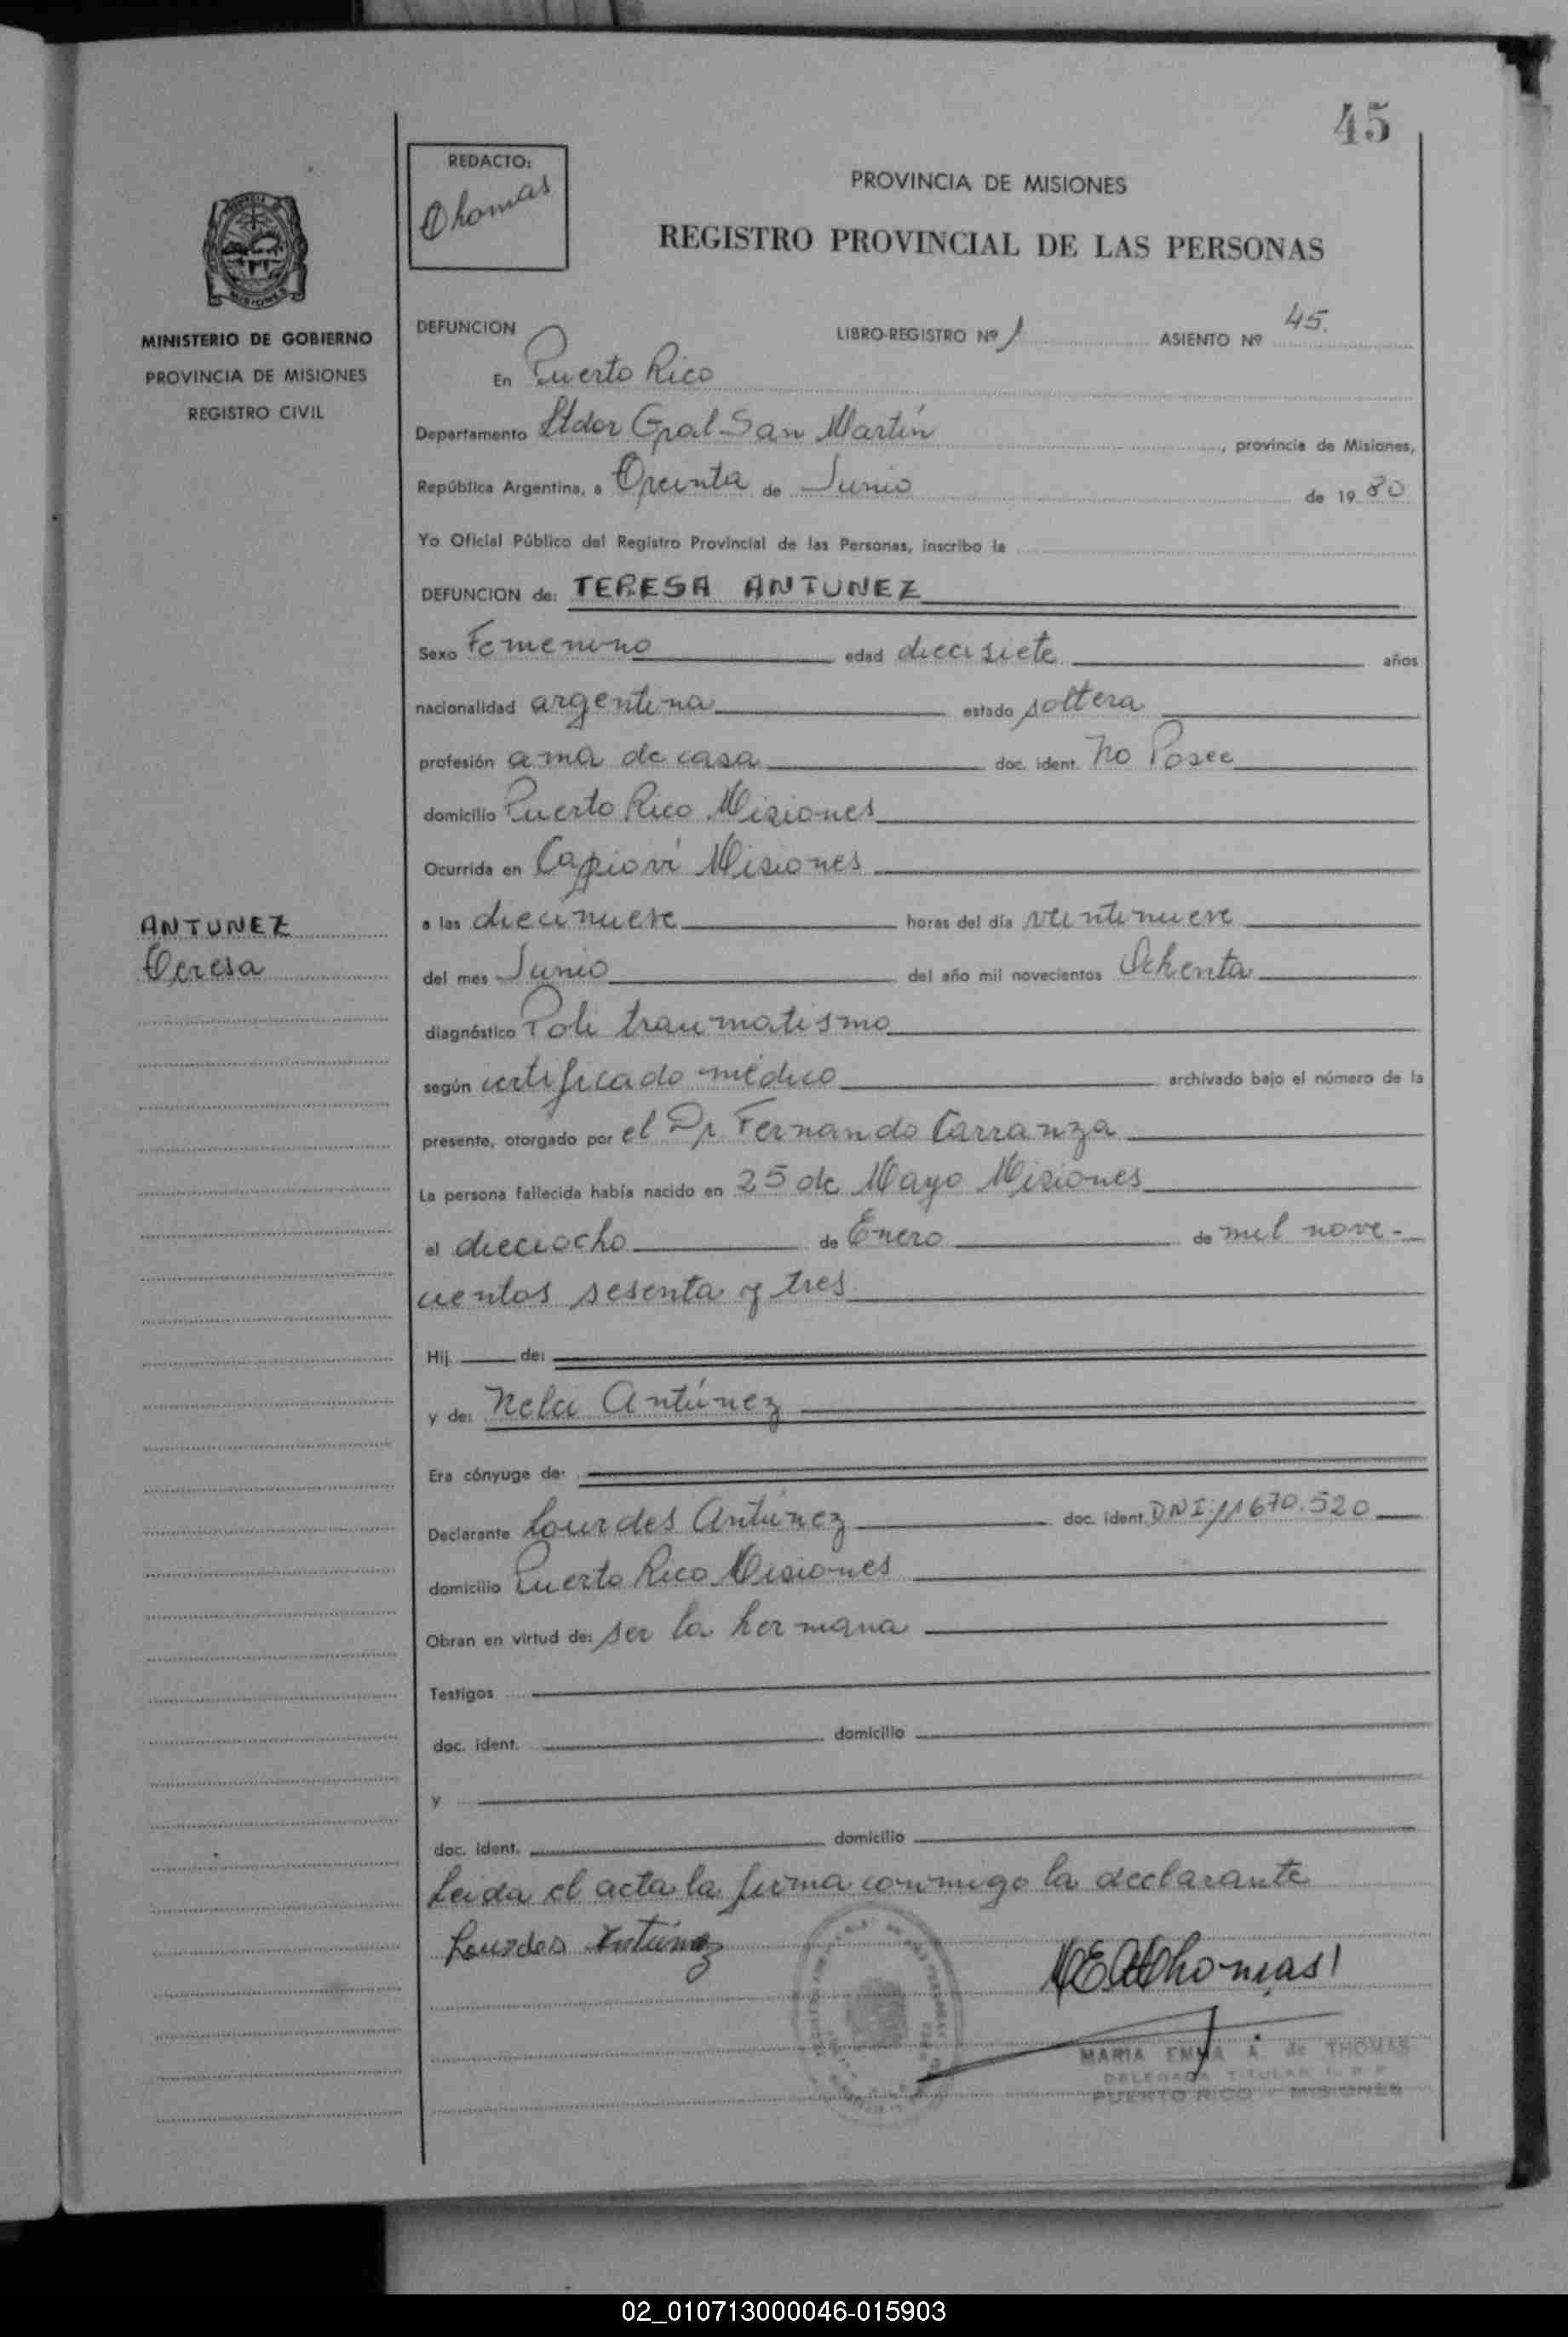 45
REDACTO:
Thomas
PROVINCIA DE MISIONES
REGISTRO PROVINCIAL DE LAS PERSONAS
MISIONES
MINISTERIO DE GOBIERNO
PROVINCIA DE MISIONES
REGISTRO CIVIL
DEFUNCION LIBRO-REGISTRO Nº 1 ASIENTO Nº 45.
En Puerto Rico
Departamento Ltdor Gral San Martín, provincia de Misiones,
República Argentina, a Treinta de Junio de 19 80
Yo Oficial Público del Registro Provincial de las Personas, inscribo la
DEFUNCION de: TERESA ANTUNEZ
Sexo Femenino edad diecisiete años
nacionalidad argentina estado soltera
profesión ama de casa doc. ident. No Posee
domicilio Puerto Rico Misiones
Ocurrida en Capioví Misiones
ANTUNEZ
Teresa
a las diecinueve horas del día veintinueve
del mes Junio del año mil novecientos Ochenta
diagnóstico Poli traumatismo
según certificado médico archivado bajo el número de la
presente, otorgado por el Dr Fernando Carranza
La persona fallecida había nacido en 25 de Mayo Misiones
el dieciocho de Enero de mil nove-
cientos sesenta y tres
Hij de:
y de: Nela Antúnez
Era cónyuge de:
Declarante Lourdes Antúnez doc. ident. DNI: 11670.520
domicilio Puerto Rico Misiones
Obran en virtud de: ser la hermana
Testigos
doc. ident. domicilio
y
doc. ident. domicilio
Leida el acta la firma conmigo la declarante
Lourdes Antúnez
MEAThomas
MARIA EMMA A. de THOMAS
DELEGADA TITULAR R. P. P.
PUERTO RICO - MISIONES
02_010713000046-015903